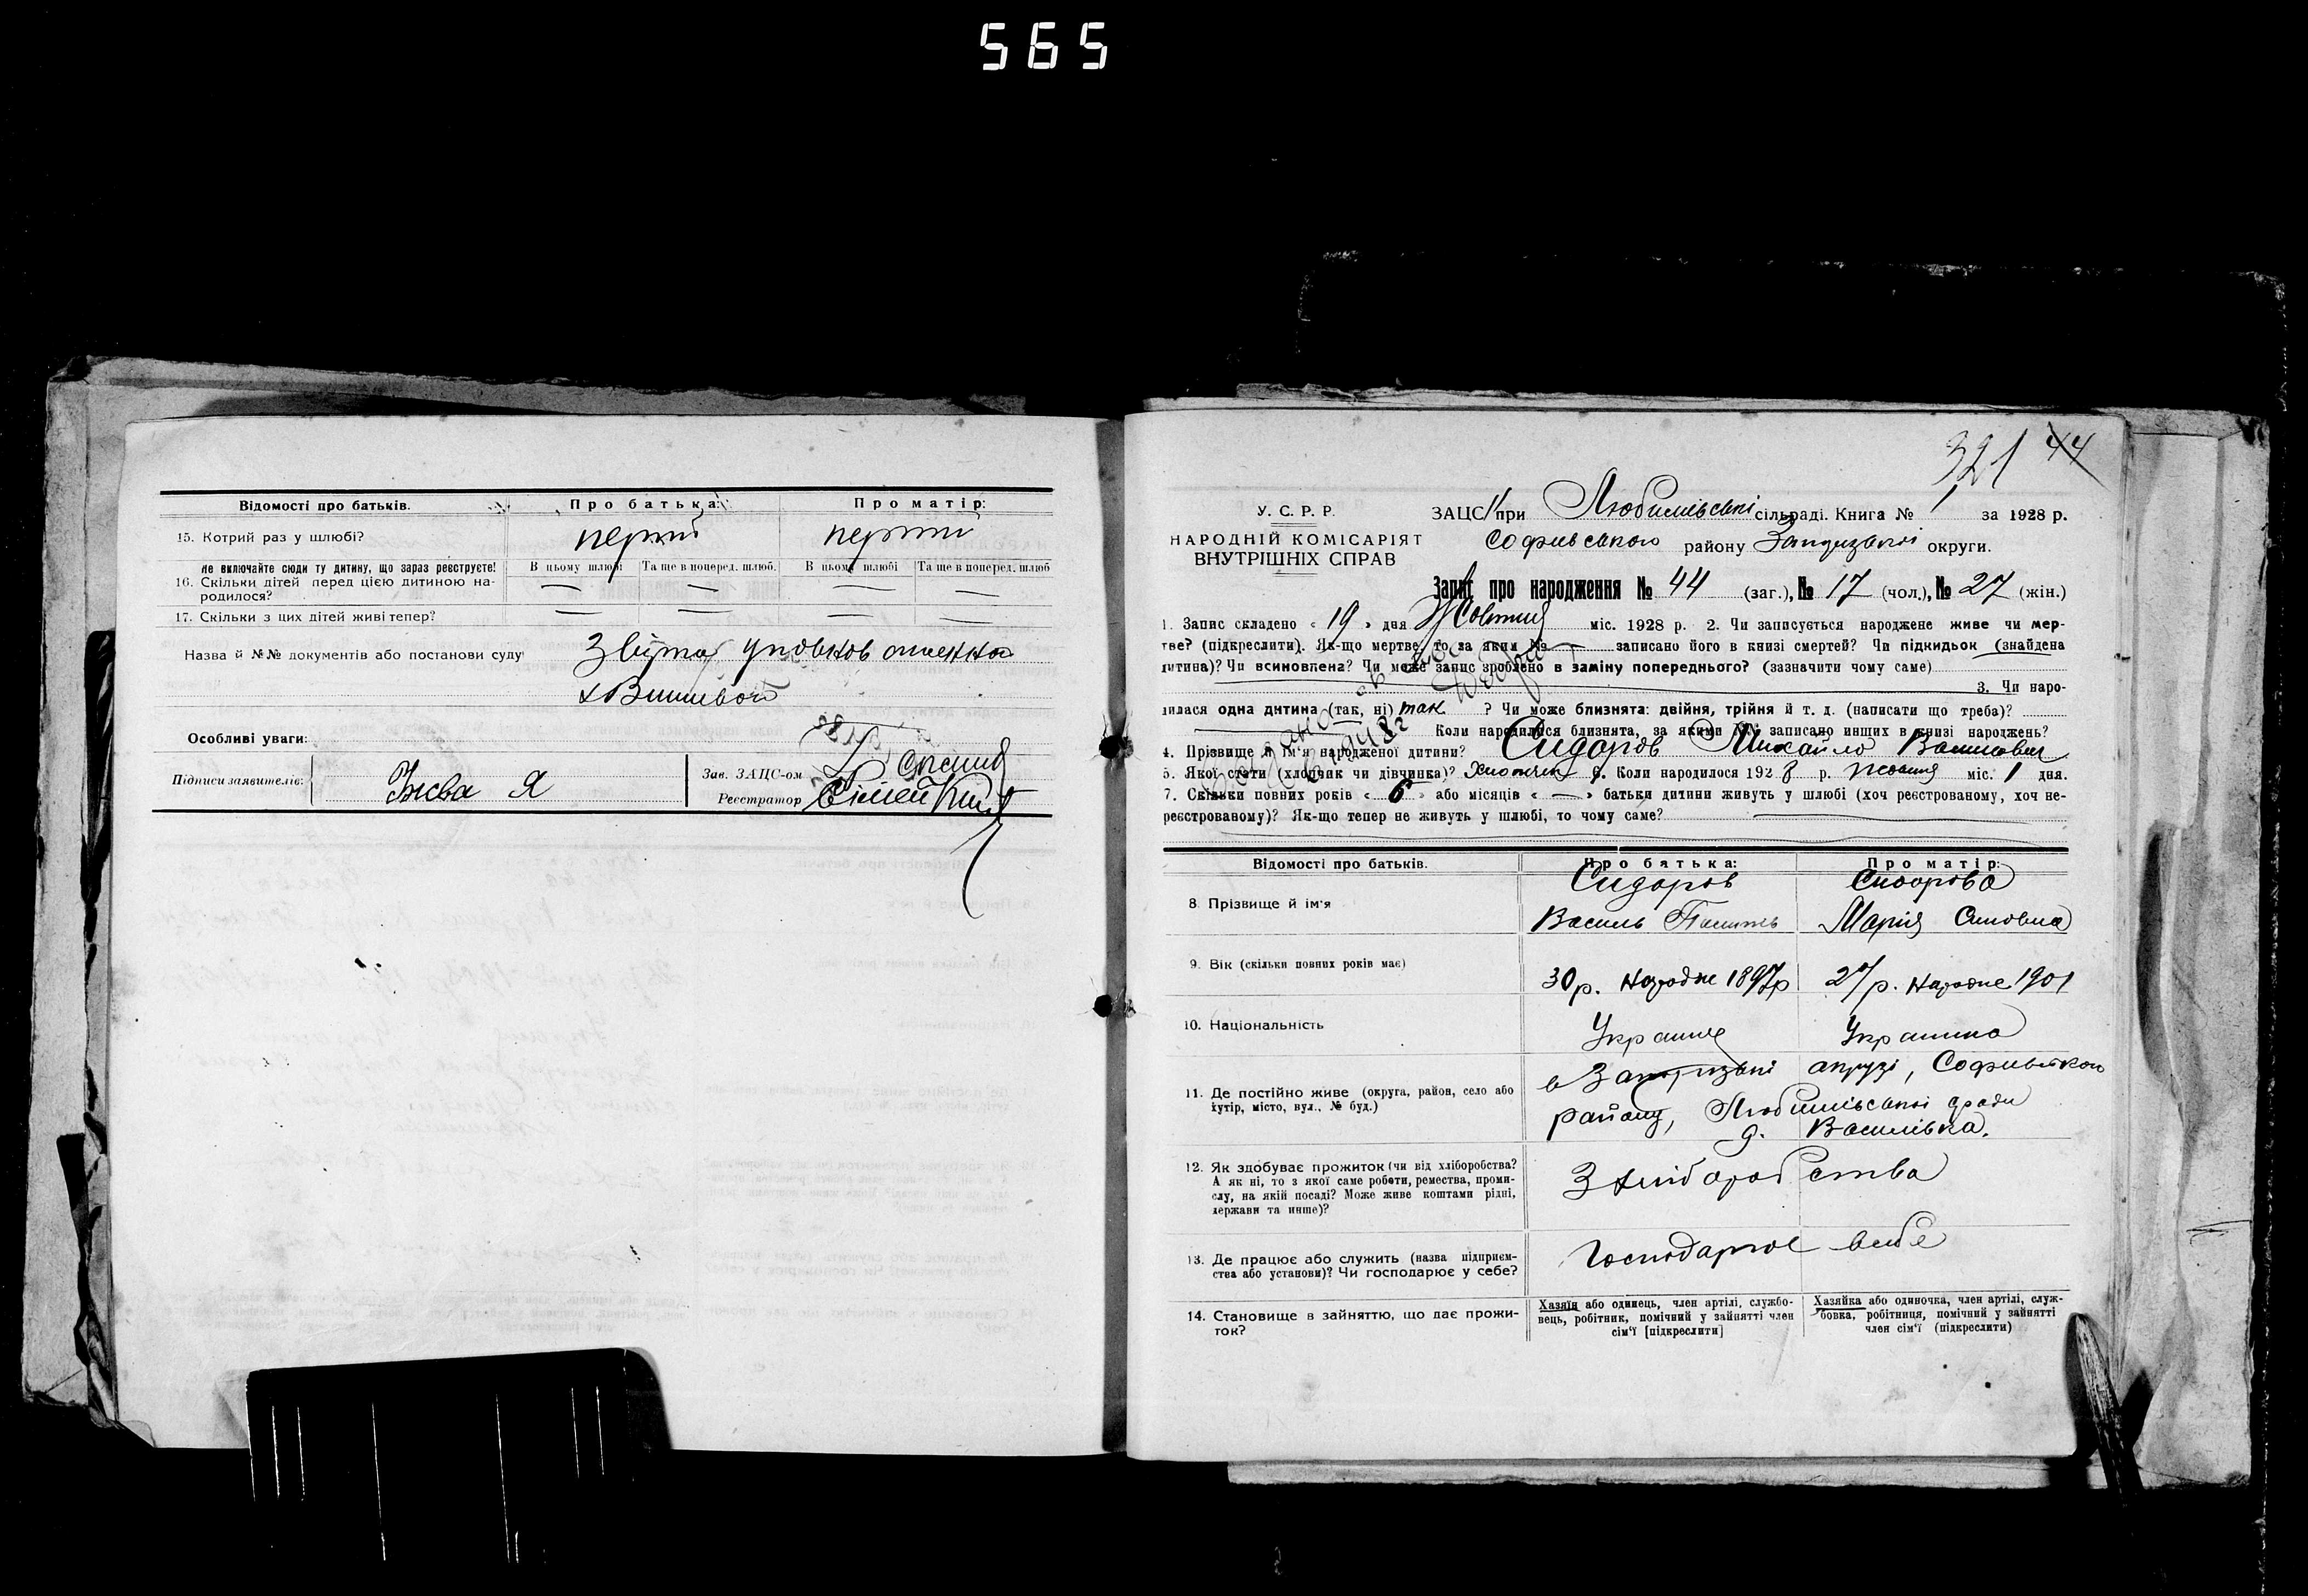 565
Відомості про батьків. Про батька: Про матір:
15. Котрий раз у шлюбі? перший перший
не включайте сюди ту дитину, що зараз реєструєте! В цьому шлюбі Та ще в поперед. шлюб. В цьому шлюбі Та ще в поперед. шлюб
16. Скільки дітей перед цією дитиною на-
родилося? — — — —
17. Скільки з цих дітей живі тепер? — — — —
Назва й №№ документів або постанови суду
Особливі уваги:
Підписи заявителів: Зав. ЗАЦС-ом
Реєстратор
321 44
У. С. Р. Р.
НАРОДНІЙ КОМІСАРІЯТ
ВНУТРІШНІХ СПРАВ
ЗАЦС при Любимівські сільраді. Книга № 1 за 1928 р.
Софиівського району Запоризької округи.
Запис про народження № 44 (заг.), № 17 (чол.), № 27 (жін.)
1. Запис складено « 19 » дня Жовтня міс. 1928 р. 2. Чи записується народжене живе чи мер-
тве? (підкреслити). Як-що мертве, то за яким № — записано його в книзі смертей? Чи підкидьок (знайдена
дитина)? Чи всиновлена? Чи може запис зроблено в заміну попереднього? (зазначити чому саме)
3. Чи наро-
дилася одна дитина (так, ні) так ? Чи може близнята: двійня, трійня й т. д. (написати що треба)?
Коли народилися близнята, за якими №№ записано инших в книзі народжень?
4. Прізвище й ім'я народженої дитини? Сидоров Михайло Васильович
5. Якої стати (хлопчик чи дівчинка)? Хлопчик 6. Коли народилося 1928 р. жовтня міс. 1 дня.
7. Скільки повних років « 6 » або місяців « — » батьки дитини живуть у шлюбі (хоч реєстрованому, хоч не-
реєстрованому)? Як-що тепер не живуть у шлюбі, то чому саме?
Відомості про батьків. Про батька: Про матір:
8. Прізвище й ім'я Сидоров Сидорова
Василь Марія
9. Вік (скільки повних років має) 30 р. народже 1897 р 27 р. народже 1901
10. Національність Українец Українка
11. Де постійно живе (округа, район, село або
хутір, місто, вул., № буд.)
в Запоризькі окрузі, Софиівського
району, Любимівської сради
д. Василівка.
12. Як здобуває прожиток (чи від хліборобства?
А як ні, то з якої саме роботи, ремества, проми-
слу, на якій посаді? Може живе коштами рідні,
держави та инше)?
З хліборобства
13. Де працює або служить (назва підприєм-
ства або установи)? Чи господарює у себе?
Господарює всебе
14. Становище в зайняттю, що дає прожи-
ток?
Хазяїн або одинець, член артілі, службо-
вець, робітник, помічний у зайнятті член
сім'ї [підкреслити]
Хазяйка або одиночка, член артілі, служ-
бовка, робітниця, помічний у зайнятті
член сім'ї (підкреслити)